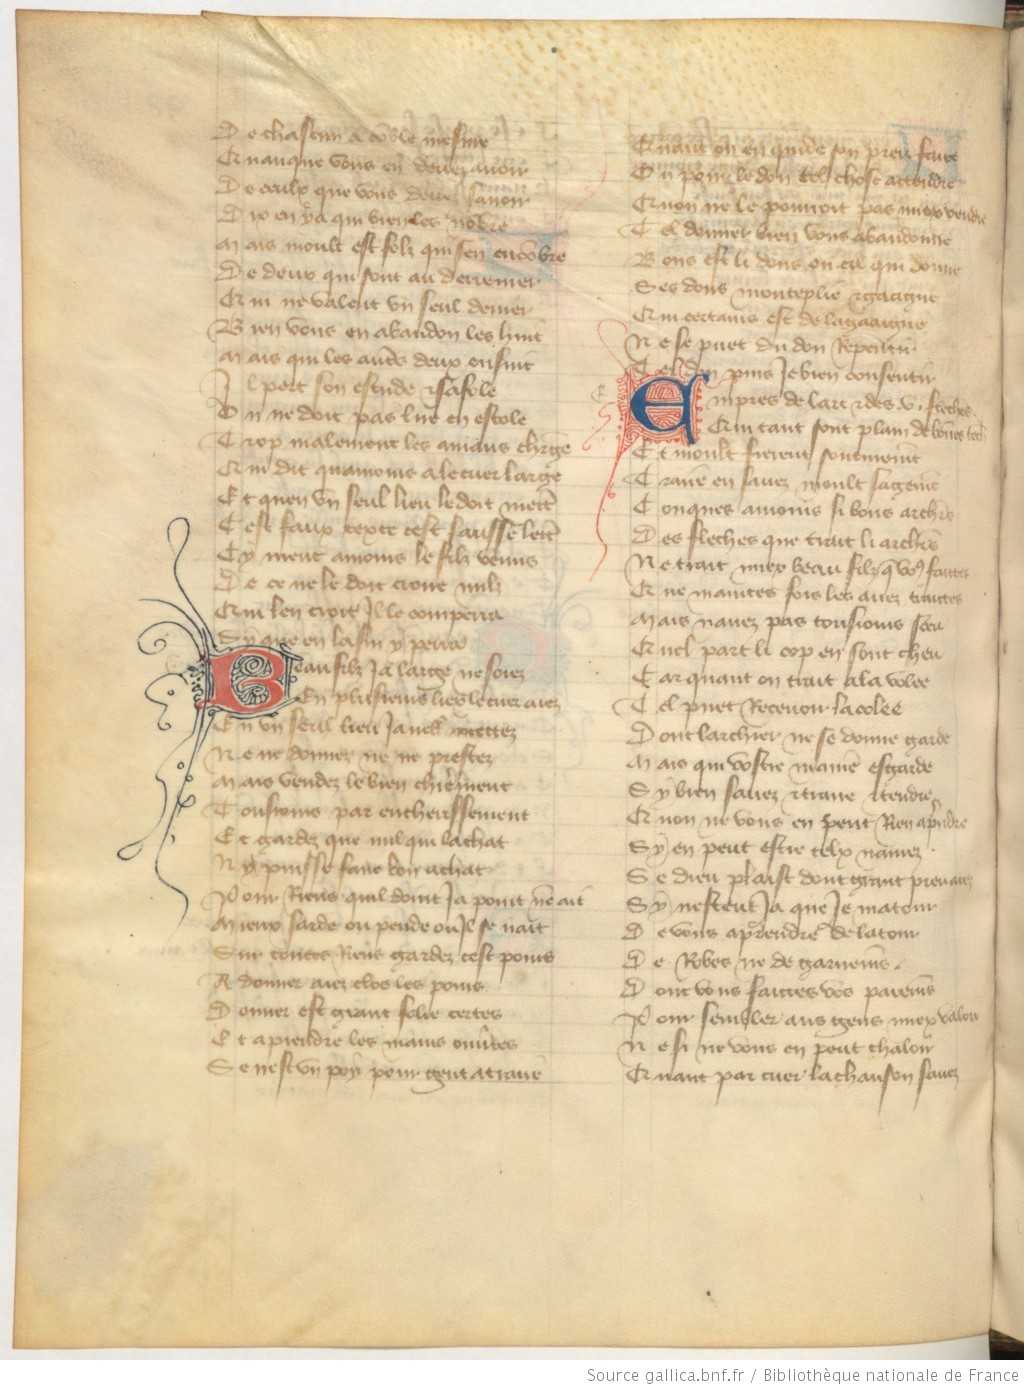 De chascun a co᷑ le mesme
Quanque vous en devez avoir
De ceulx que vous devez savoir
Dix en y a qui bien les nōbre
Mais moult est folz qui sen encōbre
De deux qui sont au derrenier
Qui ne valent vn seul denier
Bien vous en abandon les huit
Mais qui les auts deux ensuit
Il pert son estude & safole
On ne doit pas lire en escole
Trop malement les amans charge
Qui dit quamours a le cuer large
Et quen vn seul lieu le doit mett̄
Cest faux texte cest fausse lett̄
Cy ment amours le filz venus
De ce ne le doit croire nulz
Qui len croit Il le comperra
Sy que en la fin y perra
Beau filz Ja large ne soiez
En plusieurs lies le cuer aiez
En vn seul lieu Ja nell mettez
Ne ne donnez ne ne prestez
Mais vendez le bien chierement
Tousiours par encherissement
Et gardez que nul qui lachat
Ny puisse faire bon achat
Pour Riens quil doint Ja point nen ait
Mieux sarde ou pende ou Il se nait
Sur toutes Riens gardez cest poins
A donner aiez clos les poins
Donner est grant folie certes
Et a prendre les mains ouutes
Se nest vn poy pour gent atraire
Quant on en quide son preu faire
Ou pour le don tel chose attendre
Quon ne le pourroit pas miex vendre
Tel donner bien vous abandonne
Bons est li dons ou cil qui donne
Ses dons monteplie & gaaigne
Qui certains est de la gaaigne
Ne se puet du don Repentir
Tel don puis Je bien consentir
Empres de larc & des v. fleches
Qui tant sont plain de bōnes tech
Et moult fierent soutiment
Traire en sauez moult sagemt
Conques amours li bons archrs
Des fleches que trait li archrs
Ne trait miex beau filz q̄ vo9 faites
Que maintes fois les auez traites
Mais nauez pas tousiours sceu
Quel part li cop en sont cheu
Car quant on trait a la volee
Tel puet Recevoir la colee
Dont larchier ne se donne garde
Mais qui vostre maniere esgarde
Sy bien sauez & traire & tendre
Quon ne vous en peut Rien aprēdre
Sy en peut estre telx naurez
Se dieu plaist dont grant preu aurez
Sy nesteut Ja que Je matour
De vous aprendre de latour
De Robes ne de garnemēs.
Dont vous faictes vos paremēs
Pour sembler aus gens miex valoir
Ne si ne vous en peut chaloir
Quant par cuer la chanson sauez
Source gallica.bnf.fr / Bibliothèque nationale de France